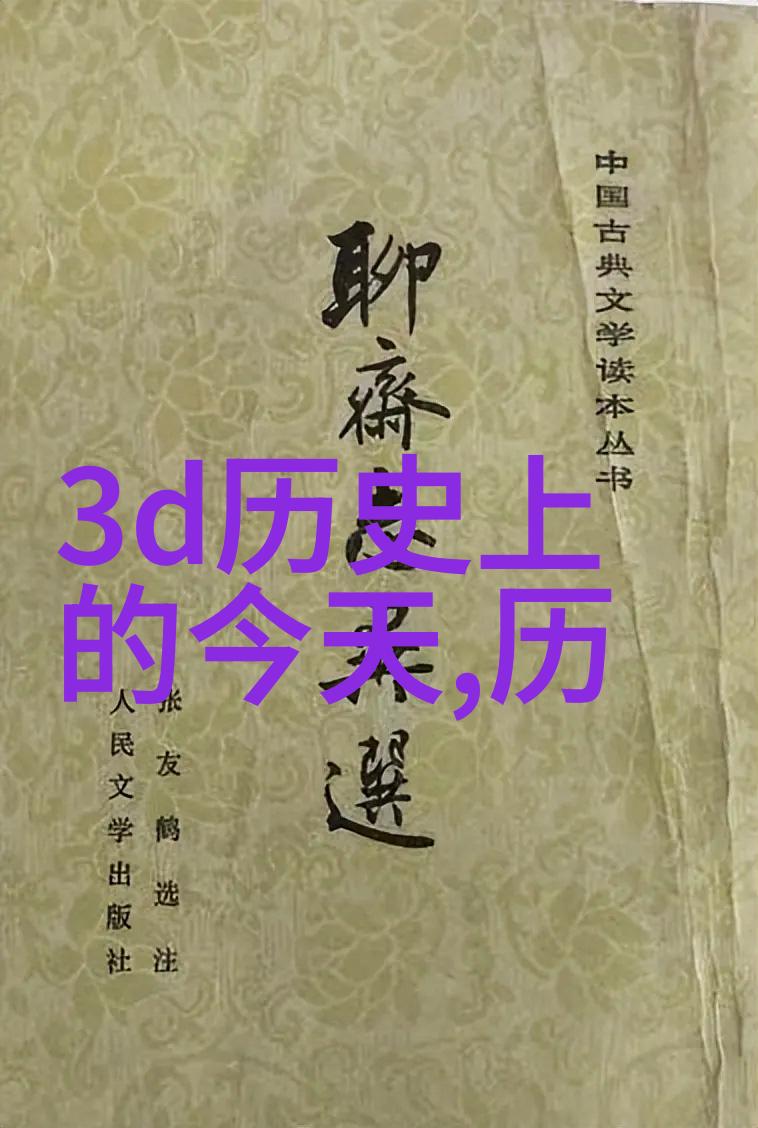 中国古典文学读本丛书
聊齋志异選
张友鹤选注
人民文学出版社
3d历史上
的今天,历